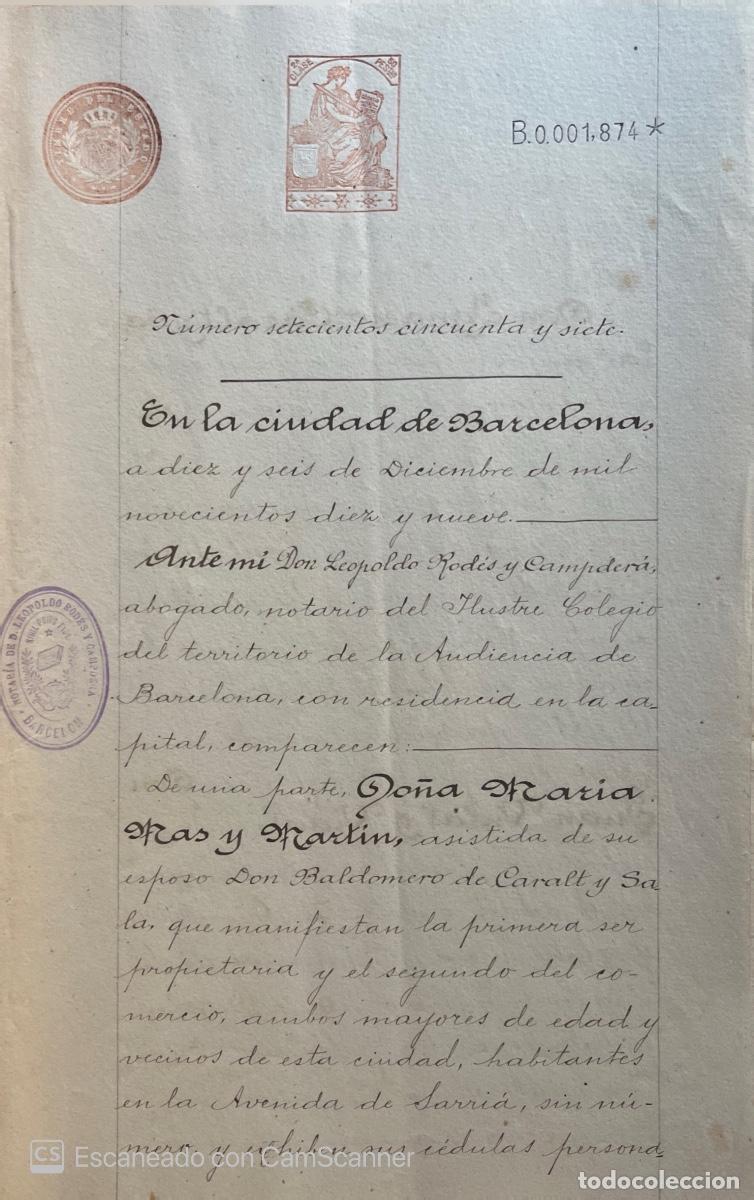 TIMBRE DEL ESTADO
2ª CLASE
50 PESOS
B.0.001,874*
Número setecientos cincuenta y siete.
En la ciudad de Barcelona,
a diez y seis de Diciembre de mil
novecientos diez y nueve.
Ante mí Don Leopoldo Rodés y Campderá,
abogado, notario del Ilustre Colegio
del territorio de la Audiencia de
Barcelona, con residencia en la ca-
pital, comparecen:
NOTARÍA DE D. LEOPOLDO RODES Y
BARCELONA
De una parte, Doña Maria
Mas y Martín, asistida de su
esposo Don Baldomero de Caralt y Sa-
la, que manifiestan la primera ser
propietaria y el segundo del co-
mercio, ambos mayores de edad y
vecinos de esta ciudad, habitantes
en la Avenida de Sarriá, sin nú-
mero y exhiben sus cédulas persona-
CS Escaneado con CamScanner
todocoleccion